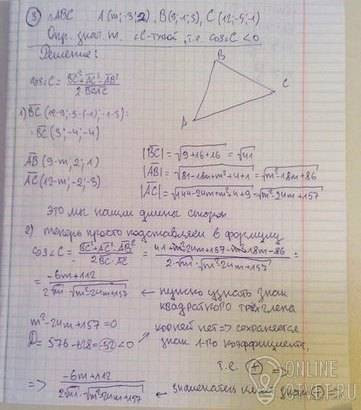 ③ △ABC A(m;-3;2), B(9;-1;3), C(12;-5;-1)
Опр. знач. m. ∠C-тупой, т.е. cos∠C < 0
Решение:
B
C
A
cos∠C = BC²+AC²-AB² / 2·BC·AC
1) BC (12-9;-5-(-1);-1-3):
BC (3;-4;-4)
AB (9-m; 2; 1)
AC (12-m; -2; -3)
|BC| = √9+16+16 = √41
|AB| = √81-18m+m²+4+1 = √m²-18m+86
|AC| = √144-24m+m²+4+9 = √m²-24m+157
это мы нашли длины сторон
2) теперь просто подставляем в формулу
cos∠C = BC²+AC²-AB² / 2·BC·AC = 41+m²-24m+157-m²+18m-86 / 2·√41·√m²-24m+157 =
= -6m+112 / 2√41·√m²-24m+157 ← нужно узнать знак
квадратного трёхчлена
m²-24m+157=0
D = 576-628=-52<0
корней нет => сохраняется
знак 1-го коэффициента,
т.е. ⊕ =>
=> -6m+112 / 2√41·√m²-24m+157 ← знаменатель имеет знак ⊕ =
ONLINE
OTVET.RU